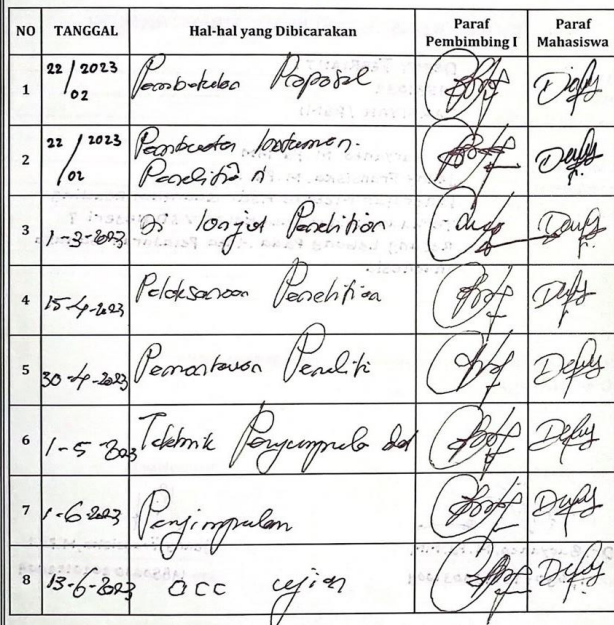 NO TANGGAL Hal-hal yang Dibicarakan Paraf Pembimbing I Paraf Mahasiswa
1 22/02 2023 Pembetulan Proposal
2 22/02 2023 Pembuatan Instrumen
Penelitian
3 1-3-2023 Di lanjut Penelition
4 15-4-2023 Pelaksanaan Penelitian
5 30-4-2023 Pemantauan Peneliti
6 1-5-2023 Tekhnik Pengumpula dat
7 1-6-2023 Penyimpulan
8 13-6-2023 acc ujian